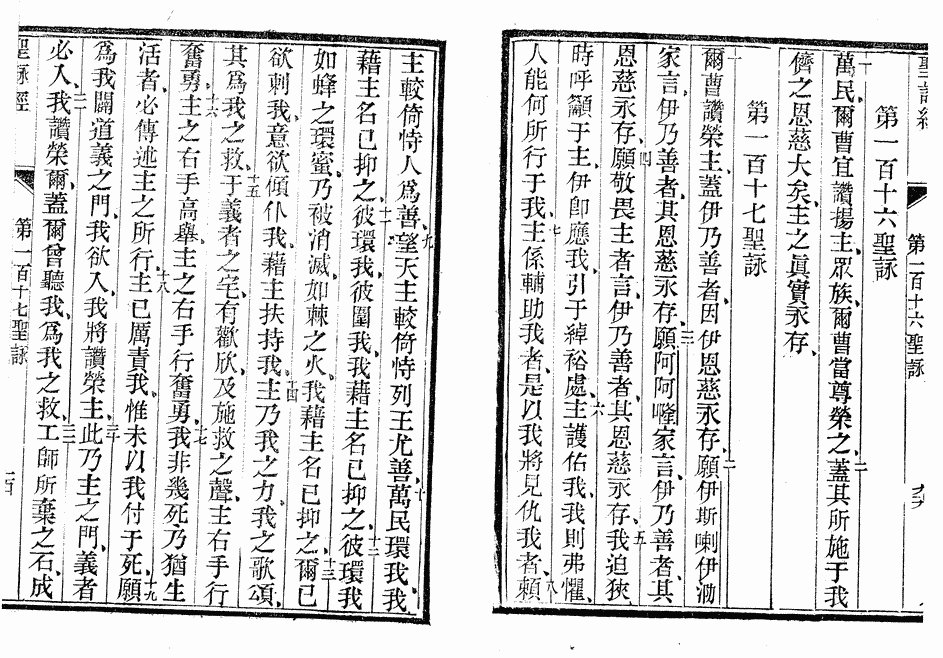 第一百十六聖詠
一萬民爾曹宜讚揚主、眾族、爾曹當尊榮之、二蓋其所施于我
儕之恩慈大矣、主之眞實永存、
第一百十七聖詠
一爾曹讚榮主、蓋伊乃善者、因伊恩慈永存、二願伊斯喇伊泐
家言、伊乃善者、其恩慈永存、三願阿阿隆家言、伊乃善者、其
恩慈永存、四願敬畏主者言、伊乃善者、其恩慈永存、五我迫狹
時呼籲于主、伊卽應我、引于綽裕處、六主護佑我、我則弗懼、
人能何所行于我、七主係輔助我者、是以我將見仇我者、八賴
第一百十六聖詠
主較倚恃人爲善、九望天主較倚恃列王尤善、十萬民環我、我
藉主名已抑之、十一彼環我、彼圍我、我藉主名已抑之、十二彼環我
如蜂之環蜜、乃被消滅、如棘之火、我藉主名已抑之、十三爾已
欲刺我、意欲傾仆我、藉主扶持我、十四主乃我之力、我之歌頌、
其爲我之救、十五于義者之宅、有歡欣、及施救之聲、主右手行
奮勇、十六主之右手高舉、主之右手行奮勇、十七我非幾死、乃猶生
活者、必傳述主之所行、十八主已厲責我、惟未以我付于死、十九願
爲我闢道義之門、我欲入、我將讚榮主、二十此乃主之門、義者
必入、二一我讚榮爾、蓋爾曾聽我、爲我之救、二二工師所棄之石、成
聖詠經
第一百十七聖詠